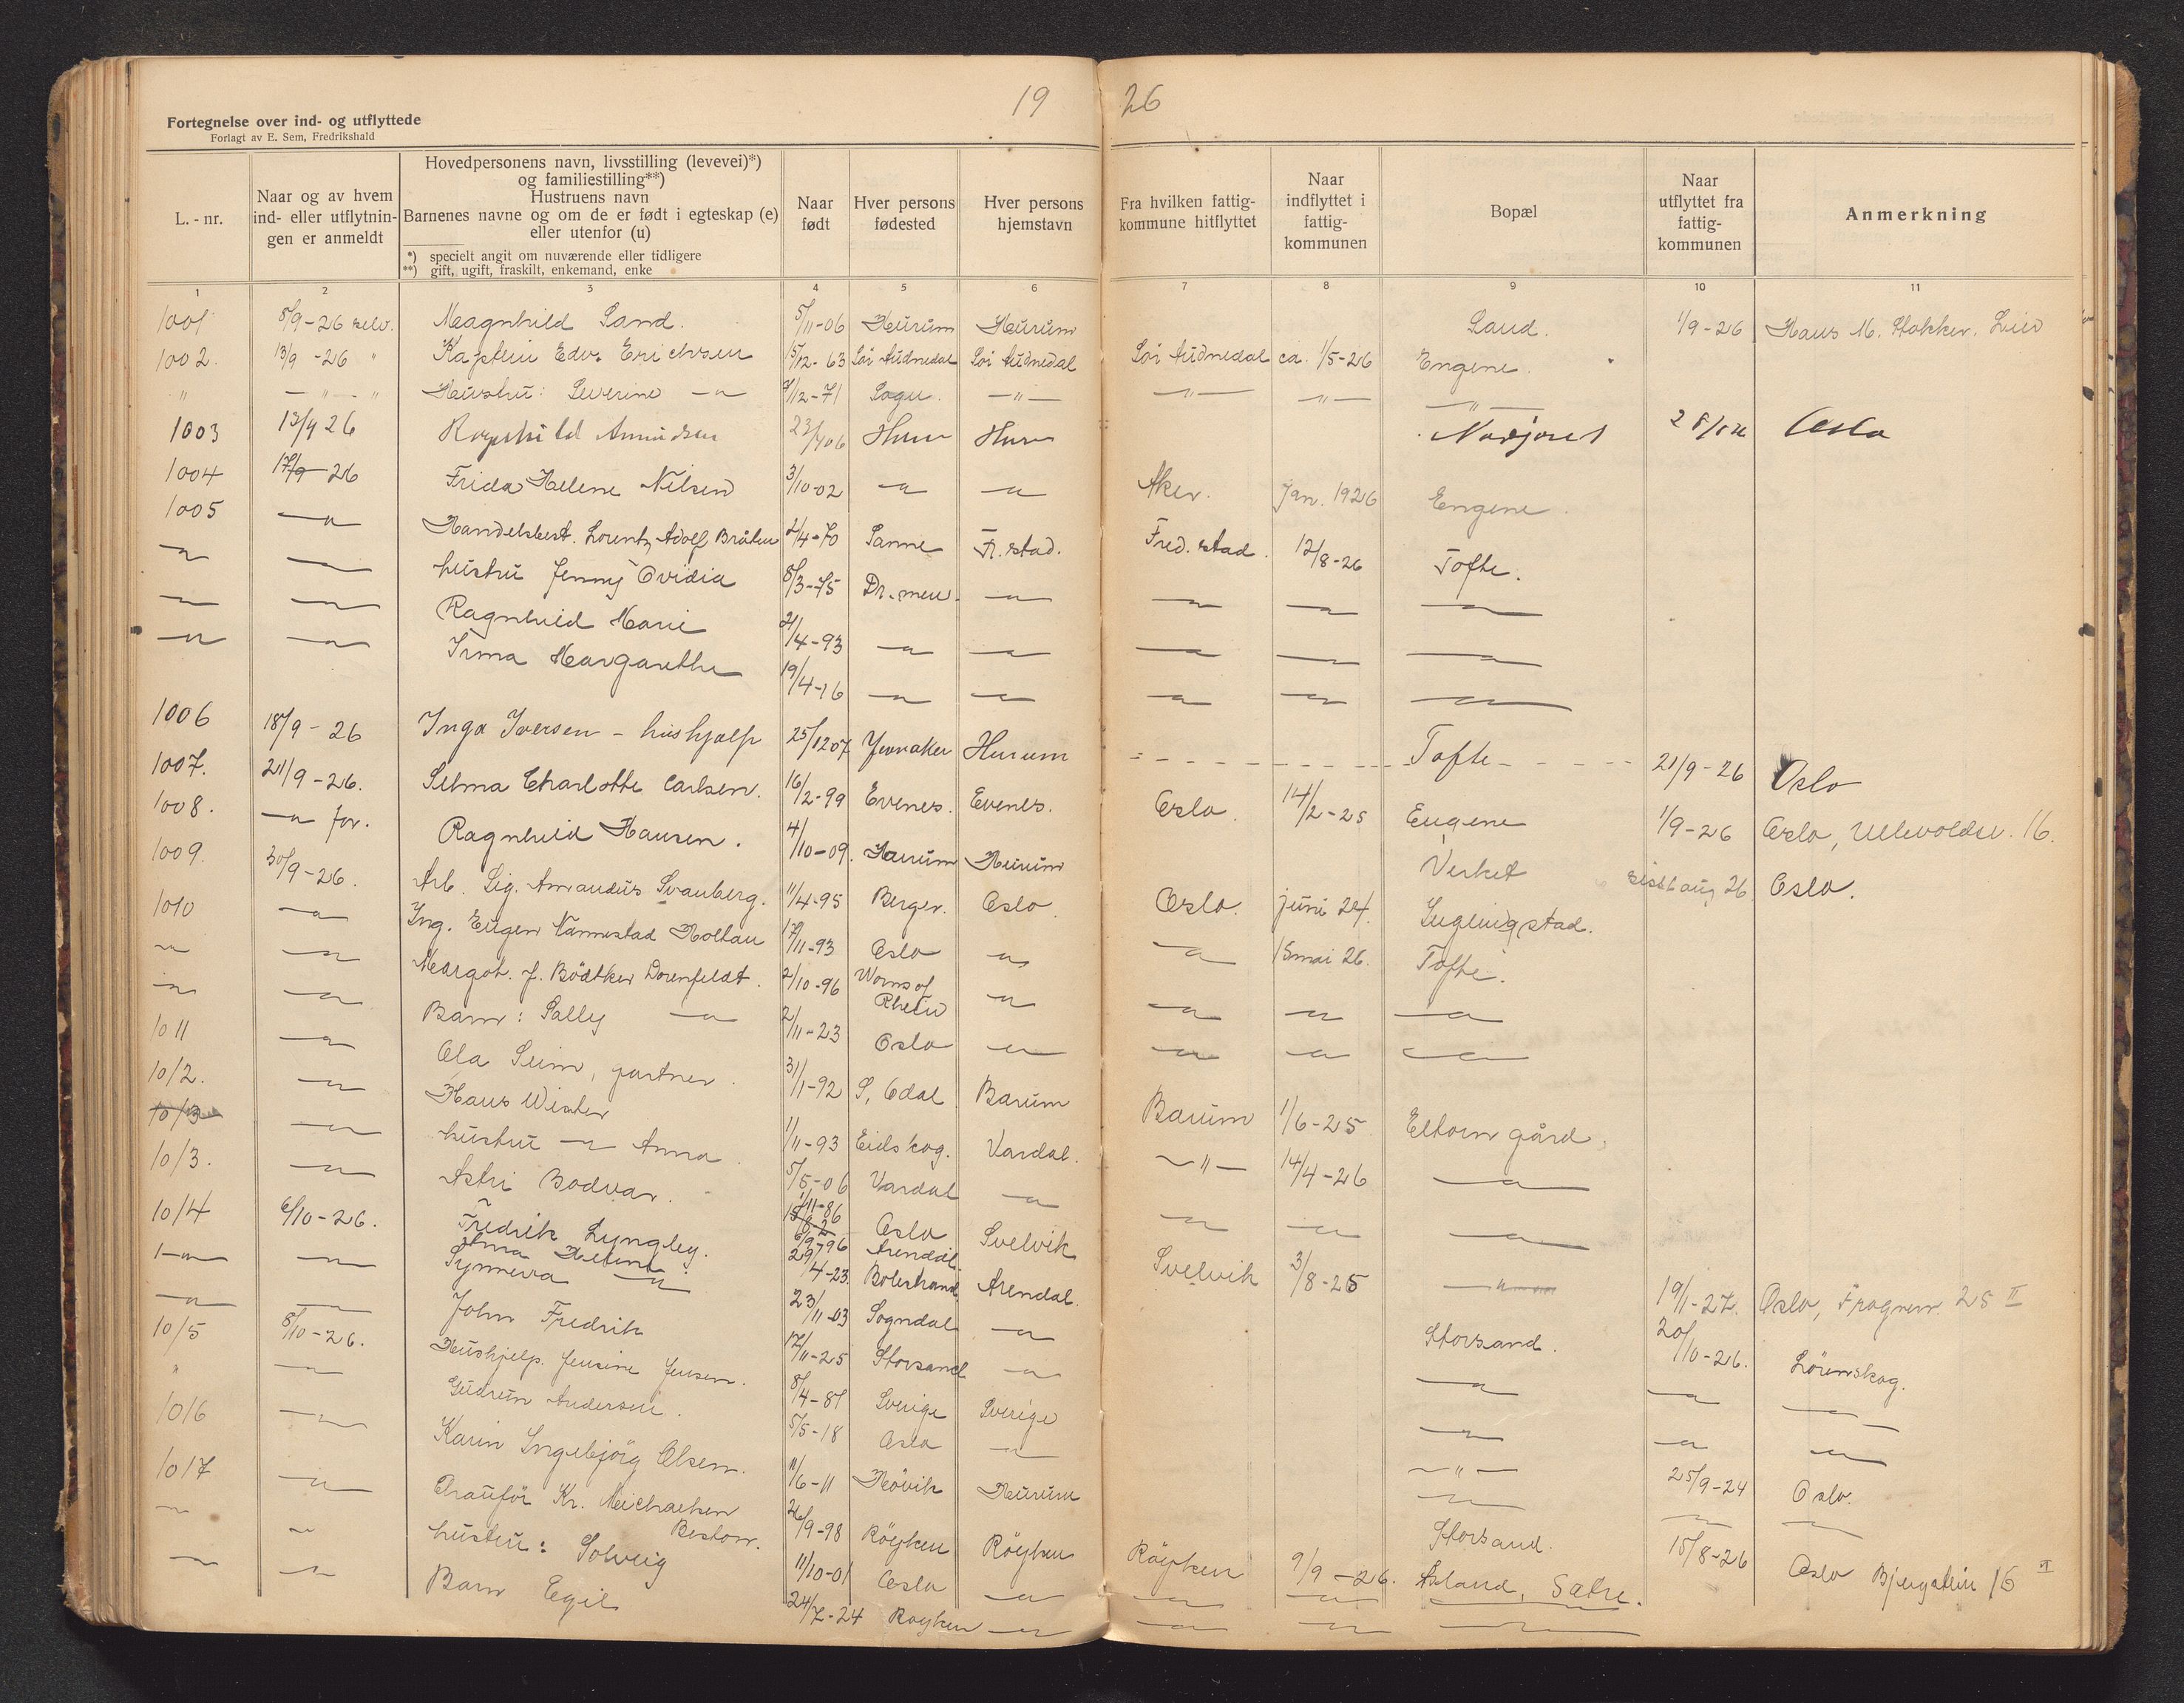 19 26
Fortegnelse over ind- og utflyttede
Forlagt av E. Sem, Fredrikshald
L. - nr.
Naar og av hvem ind- eller utflytnin- gen er anmeldt
Hovedpersonens navn, livsstilling (levevei)*)
og familiestilling**)
Hustruens navn
Barnenes navne og om de er født i egteskap (e)
eller utenfor (u)
*) specielt angit om nuværende eller tidligere
**) gift, ugift, fraskilt, enkemand, enke
Naar født
Hver persons fødested
Hver persons hjemstavn
Fra hvilken fattig- kommune hitflyttet
Naar indflyttet i fattig- kommunen
Bopæl
Naar utflyttet fra fattig- kommunen
Anmerkning
1 2 3 4 5 6 7 8 9 10 11
1001 8/9-26 selv. Magnhild Sand. 5/11-06 Hurum Hurum Sand. 1/9-26 Hans M. Stokker, Lier
1002. 13/9-26 " Kaptein Edv. Erichsen 5/12-63 Sör Audnedal Sör Audnedal Sör Audnedal ca. 1/5-26 Engene.
" — " — " Hustru: Severine — " — /12-71 Sogn. — " — — " — — " — — " —
1003 13/9 26 Ragnhild Amundsen 23/ 06 Hurum Hurum Oslo
1004 17/9-26 Frida Helene Nilsen 3/10-02 — " — — " — Aker. Jan. 1926 Engene.
1005 — " — Handelsbest. Lorentz Adolf Bråten 2/4-70 Sanne Fr. stad. Fred. stad. 12/8-26 Tofte.
— " — — " — hustru Jenny Ovidia 8/3-75 Dr.men. — " — — " — — " — — " —
— " — — " — Ragnhild Marie 21/4-93 — " — — " — — " — — " — — " —
— " — — " — Irma Margarethe 19/4-16 — " — — " — — " — — " — — " —
1006 18/9-26 Inga Iversen - hushjælp 25/12 07 Jevnaker Hurum - - - - - Tofte - - - - 21/9-26 Oslo
1007. 21/9-26. Selma Charlotte Carlsen. 16/2-99 Evenes. Evenes. Oslo. 14/2-25 Engene 1/9-26 Oslo, Ullevoldsv. 16.
1008. — " — for. Ragnhild Hansen. 4/10-09. Hurum Hurum Verket sidst aug 26 Oslo.
1009. 30/9-26. Arb. Sig. Amandus Svanberg. 11/4-95 Berger. Oslo. Oslo. juni 24.
1010 — " — Ing. Eugen Nannestad Holtan 17/11-93 Oslo — " — — " — 15 mai 26. Tofte.
— " — — " — Margot. J. Bödtker Dorenfeldt. 2/10-96 Worms of Rhein — " — — " — — " — — " —
— " — — " — Barn: Sally — " — 2/11-23 Oslo — " — — " — — " — — " —
1011 — " — Ola Seim, gartner. 31/1-92 S. Odal Barum Barum 1/6-25 Elton gård.
1012. — " — Hans Wister 1/11-93 Eidskog. Vardal. — " — 14/4-26 — " —
1013 — " — hustru — " — Anna. 5/5-06 Vardal — " — — " — — " — — " —
1013. — " — Astri Bodvar. Oslo Svelvik Svelvik 3/8-25 — " — 19/1-27. Oslo, Frognerv. 25 II
1014 6/10-26. Fredrik Lyngley. 1/11-86 Arendal. Arendal. Storsand. 20/10-26. Lörenskog.
— " — — " — Anna Helene — " — 6/9-96
Synneva — " — 29/4-23. Sogndal — " — — " — — " — — " —
— " — — " — John Fredrik 17/11-25 Storsand — " — — " — — " — — " —
1015 8/10-26. Hushjelp. Jensine Jensen. 8/4-87 Sverige Sverige — " — 25/9-24 Oslo.
" — " — Gudrun Andersen. 5/5-18 Oslo — " — — " — — " — — " —
1016 — " — Karin Ingebjörg Olsen. 11/6-11 Hövik Hurum Storsand. 15/8-26 Oslo Bjergstein 16 II
1017 — " — Chauför Kr. Michaelsen Beston. 26/9-98 Röyken Röyken Röyken 9/9-26. Åsland, Sætre.
— " — — " — hustru: Solveig 11/10-01 Oslo — " — — " — — " — — " —
— " — — " — Barn Egil 24/7-24 Röyken — " — — " — — " — — " —